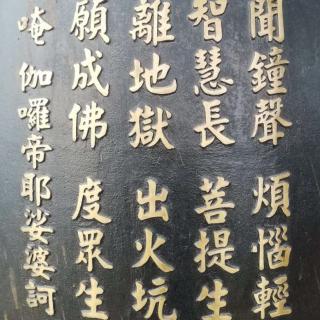 聞鐘聲 煩惱輕
智慧長 菩提生
離地獄 出火坑
願成佛 度眾生
唵 伽囉帝耶娑婆訶